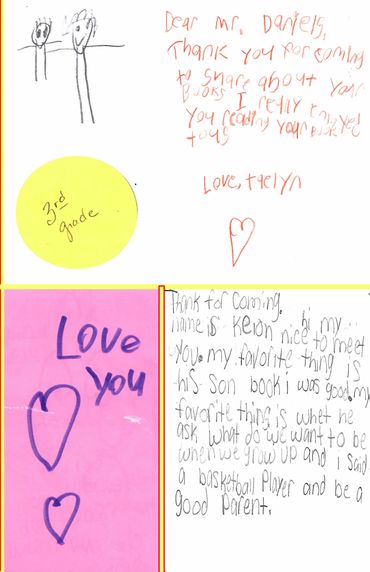 Dear Mr. Daniels,
Thank you for coming
to share about your
Books I relly enjoyed
you reading your Book to
tous
Love, taelyn
3rd
grade
Love
You
Thank for coming.
hi my
name is Keion nice to meet
you. my favorite thing is
his son book i was good. my
favorite thing is whet he
ask what do we want to be
when we grow up and i said
a basketball Player and be a
good Parent.